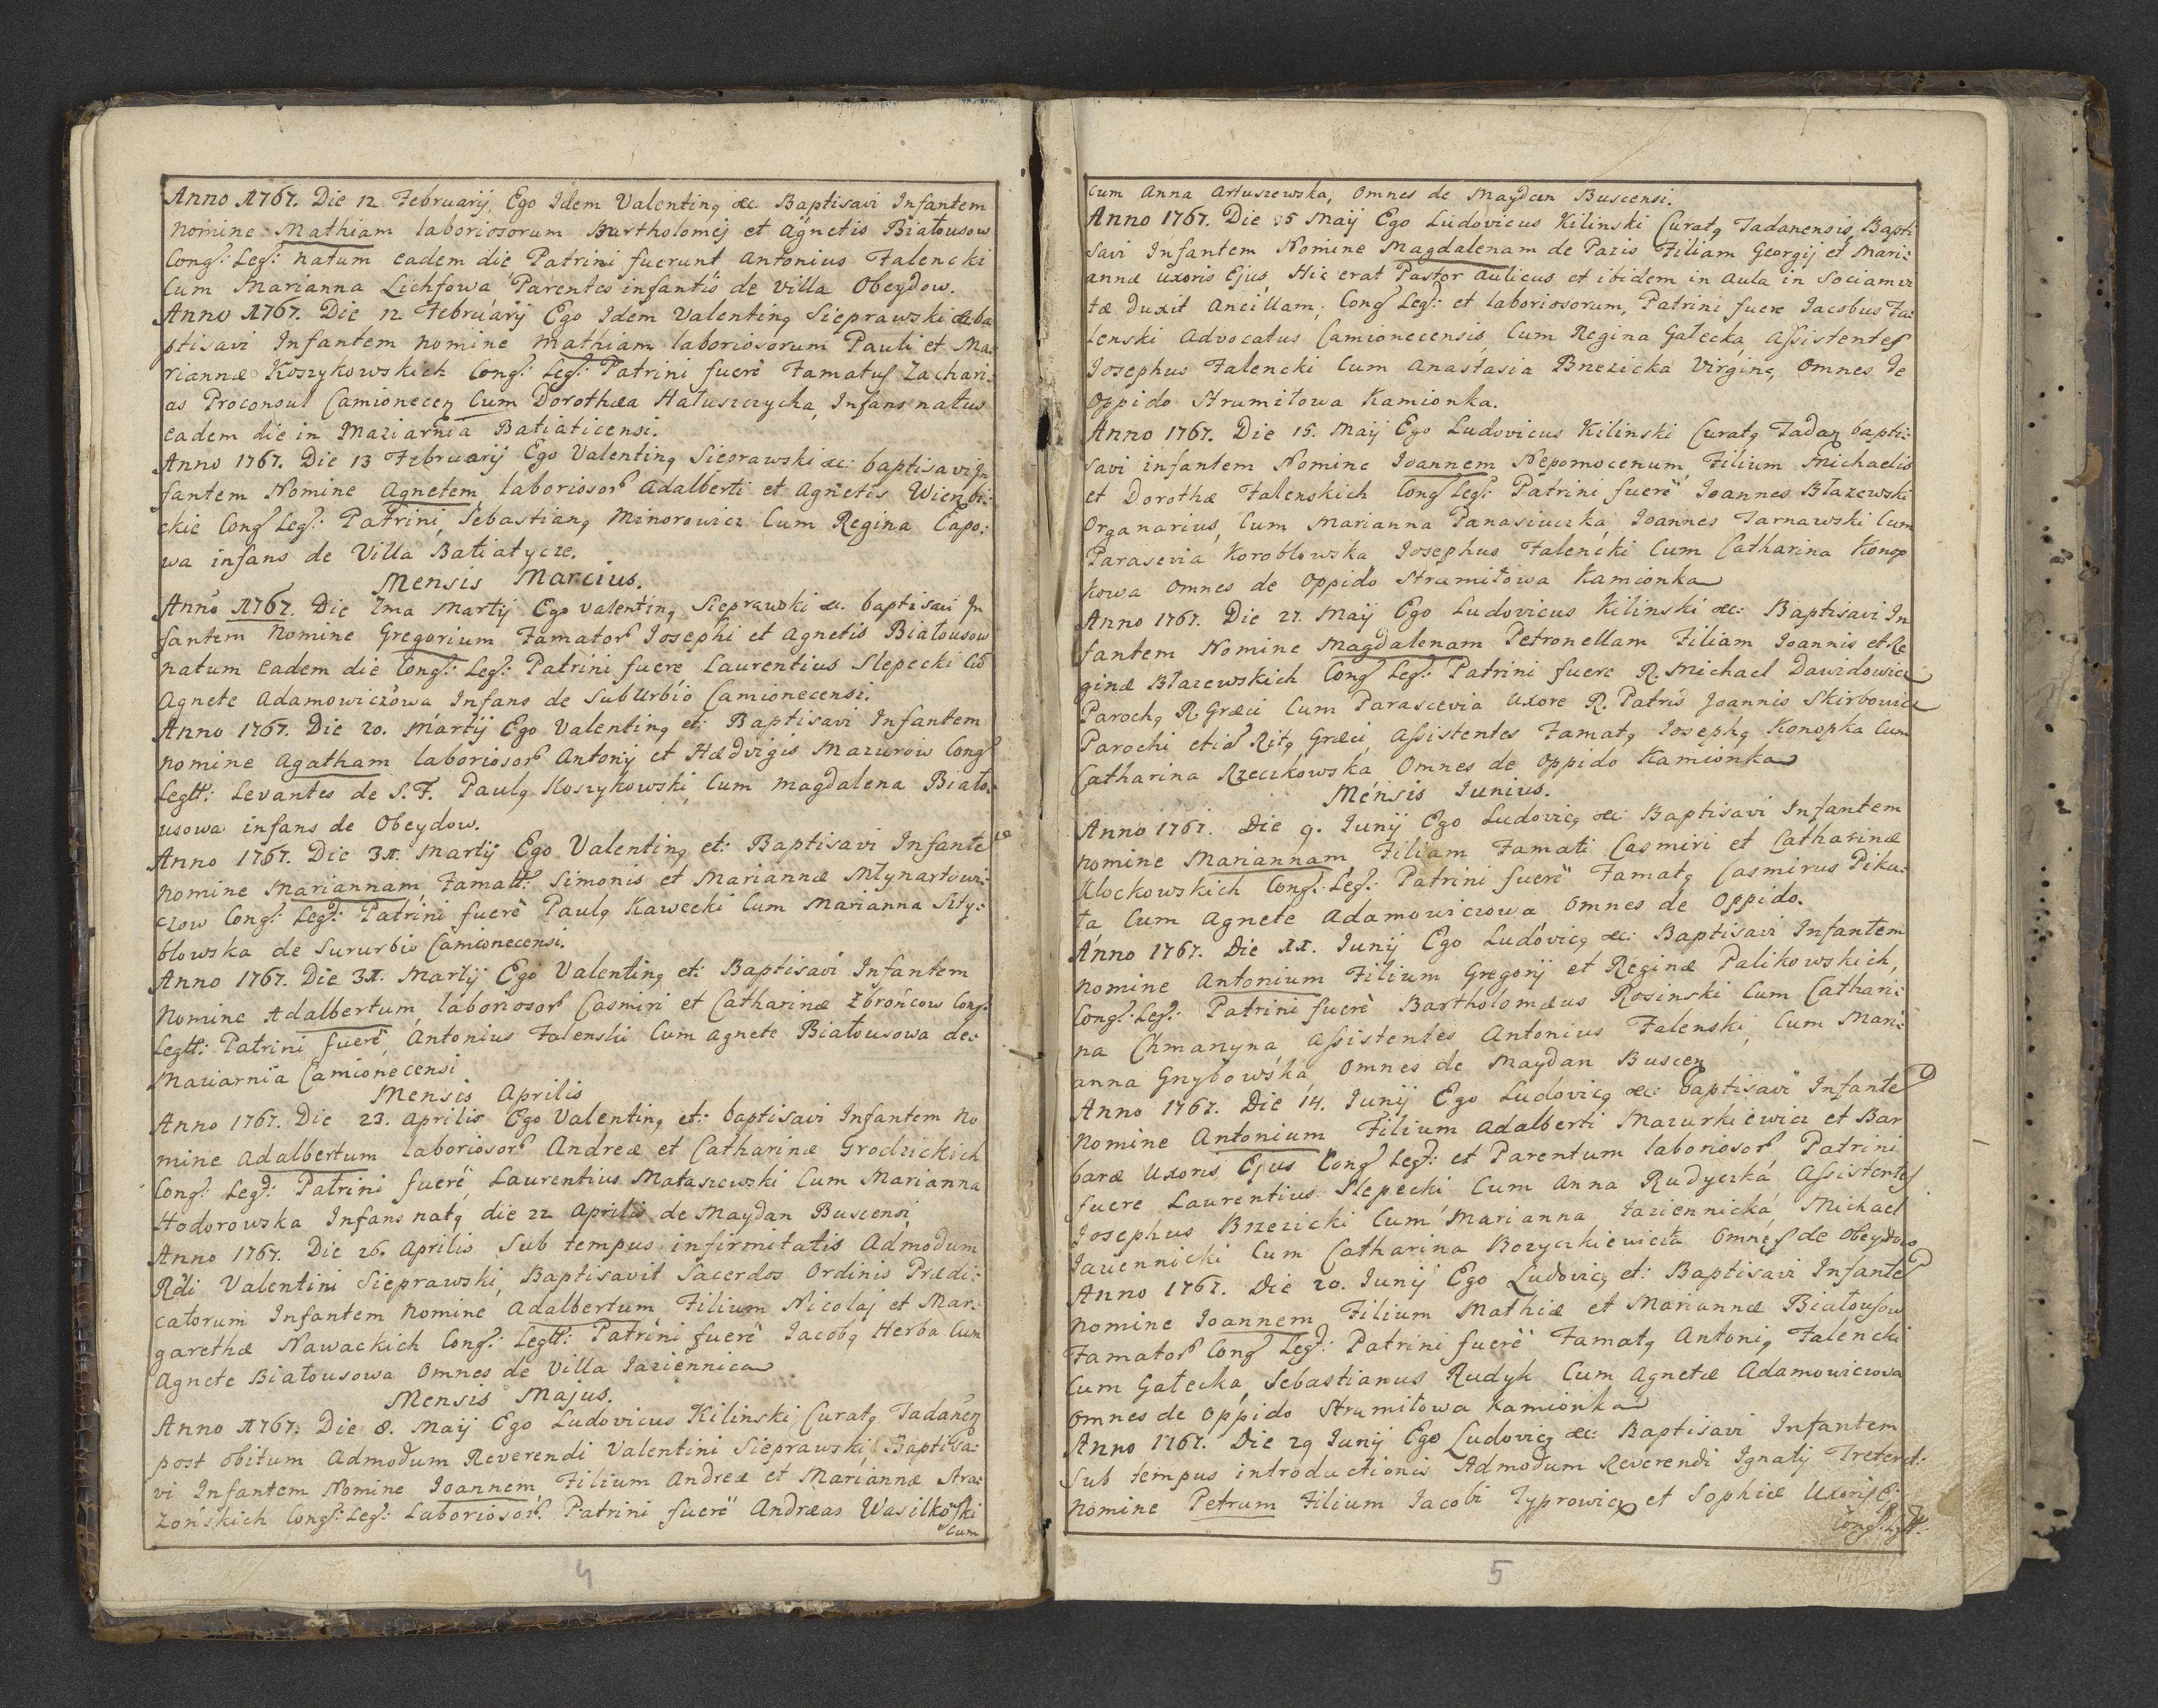 Anno 1767. Die 12 Februarij, Ego Idem Valentinq &c. Baptisavi Infantem
nomine Mathiam laboriosorum Bartholomej et Agnetis Białousow
Congs: Legs: natum eadem die Patrini fuerunt Antonius Falencki
Cum Marianna Lichfowa Parentes infantis de villa Obeydow.
Anno 1767. Die 12 Februarij Ego Idem Valentinq Sieprawski &c ba
ptisavi Infantem nomine Mathiam laboriosorum Pauli et Ma:
riannæ Koszykowskich Congs: Legs: Patrini fuerè Famatus Zachari:
as Proconsul Camionecen Cum Dorothæa Hałuszczycka, Infans natus
eadem die in Maziarnia Batiaticensi.
Anno 1767. Die 13 Februarij Ego Valentinq Sieprawski &c: baptisavi In
fantem Nomine Agnetem laboriosor Adalberti et Agnetis Wierzbi:
ckie Congs Legs: Patrini, Sebastianq Minorowicz Cum Regina Capo:
wa infans de Villa Batiatycze.
Mensis Marcius.
Anno 1767. Die 7ma Martij Ego Valentinq Sieprawski &c. baptisavi In
fantem Nomine Gregorium Famator Josephi et Agnetis Białousow
natum eadem die Congs: Legs: Patrini fuere Laurentius Slepecki Cũ
Agnete Adamowiczowa, Infans de SubUrbio Camionecensi.
Anno 1767. Die 20. Martij Ego Valentinq et: Baptisavi Infantem
nomine Agatham laboriosor Antonij et Hædvigis Mazurow Congs
Legtt: Levantes de S. F. Paulq Koszykowski, Cum Magdalena Biało:
usowa infans de Obeydow.
Anno 1767. Die 31. Martij Ego Valentinq et: Baptisavi Infante
nomine Mariannam Famatt: Simonis et Mariannæ Młynartowi:
czow Congs: Legt: Patrini fuerè Paulq Kawecki Cum Marianna Szty:
blowska de Sururbio Camionecensi.
Anno 1767. Die 31. Martij Ego Valentinq et: Baptisavi Infantem
Nomine Adalbertum, laboriosor Casmiri et Catharinæ Zbroncow Congs:
Legtt: Patrini fuerè, Antonius Falenski Cum Agnete Białousowa de:
Maziarnia Camionecensi
Mensis Aprilis
Anno 1767. Die 23. Aprilis Ego Valentinq et: baptisavi Infantem No
mine Adalbertum laboriosor Andreæ et Catharinæ Grodzickich
Congs: Legt: Patrini fuerè, Laurentius Mataszewski Cum Marianna
Hodorowska Infans natq die 22 Aprilis de Maydan Buscensi
Anno 1767. Die 26. Aprilis Sub tempus infirmitatis Admodum
Rdi Valentini Sieprawski, Baptisavit Sacerdos Ordinis Prædi:
catorum Infantem nomine Adalbertum Filium Nicolaj et Mar:
garethæ Nawackich Congs: Legtt: Patrini fuerè Jacobq Herba Cum
Agnete Białousowa Omnes de Villa Jaziennica
Mensis Majus.
Anno 1767. Die 8. Maij Ego Ludovicus Kilinski Curatq Tadanen
post obitum Admodum Reverendi Valentini Sieprawski, Baptisa:
vi Infantem Nomine Joannem Filium Andreæ et Mariannæ Stra:
zonskich Congs: Legs: Laboriosor. Patrini fuerè Andreas Wasilkoski
Cum
4
cum Anna Artuszewska, Omnes de Maydan Buscensi.
Anno 1767. Die 25 Maij Ego Ludovicus Kilinski Curatq Tadanensis, Bapti
savi Infantem Nomine Magdalenam de Pazis Filiam Georgij et Mari:
annæ Uxoris Ejus, Hic erat Pastor Aulicus et ibidem in Aula in Sociam vi
tæ duxit Ancillam, Congs Legs: et laboriosorum, Patrini fuere Jacobus Fa:
lenski Advocatus Camionecensis, Cum Regina Gałecka, Assistentes
Josephus Falencki Cum Anastasia Brzezicka Virgine, Omnes de
Oppido Strumiłowa Kamionka.
Anno 1767. Die 15. Maij Ego Ludovicus Kilinski Curatq Tadan bapti:
savi infantem Nomine Joannem Nepomocenum, Filium Michaelis
et Dorothæ Falenskich Congs Legs: Patrini fuerè, Joannes Błazewski
Organarius, Cum Marianna Panasiuczka, Joannes Tarnawski Cum
Parasevia Koroblowska Josephus Falencki Cum Catharina Konop
kowa Omnes de Oppido Strumiłowa Kamionka
Anno 1767. Die 27. Maij Ego Ludovicus Kilinski &c: Baptisavi In
fantem Nomine Magdalenam Petronellam Filiam Joannis et Re
ginæ Błazewskich Congs Legs: Patrini fuere R. Michael Dawidowicz
Parochq R. Græci Cum Parascevia Uxore R. Patris Joannis Skirbowicz
Parochi etiã Ritq Græci, Assistentes Famatq Josephq Konopka Cum
Catharina Rzeczkowska, Omnes de Oppido Kamionka
Mensis Junius.
Anno 1767. Die 9. Junij Ego Ludovicq &c: Baptisavi Infantem
nomine Mariannam Filiam Famati Casmiri et Catharinæ
Klockowskich Congs: Legs: Patrini fuerè Famatq Casmirus Piku:
ła, Cum Agnete Adamowiczowa Omnes de Oppido.
Anno 1767. Die 11. Junij Ego Ludovicq &c: Baptisavi Infantem
nomine Antonium Filium Gregorij et Reginæ Palikowskich,
Congs: Legs: Patrini fuerè Bartholomæus Rosinski Cum Cathari:
na Chmanyna, Assistentes Antonius Falenski, Cum Mari:
anna Gnybowska, Omnes de Maydan Buscen
Anno 1767. Die 14. Junij Ego Ludovicq &c: baptisavi Infante
nomine Antonium Filium Adalberti Mazurkiewicz et Bar
baræ Uxoris Ejus Congs Legt: et Parentum laboriosor Patrini
fuere Laurentius Slepecki Cum Anna Rudyczka, Assistentes
Josephus Brzezicki Cum Marianna Jaziennicka, Michael
Jaziennicki Cum Catharina Bozyczkiewicza Omnes de Obeydow
Anno 1767. Die 20. Junij Ego Ludovicq et: Baptisavi Infante
nomine Joannem Filium Mathiæ et Mariannæ Białousow
Famator Congs Legt: Patrini fuerè Famatq Antoniq Falencki
Cum Gałecka, Sebastianus Rudyk Cum Agnetæ Adamowiczowa
Omnes de Oppido Strumiłowa Kamionka
Anno 1767. Die 29 Junij Ego Ludovicq &c: Baptisavi Infantem
Sub tempus introductionis Admodum Reverendi Ignatij Treter et:
nomine Petrum Filium Jacobi Typrowicz et Sophiæ Uxoris Ej:
Congs: Legtt:
5